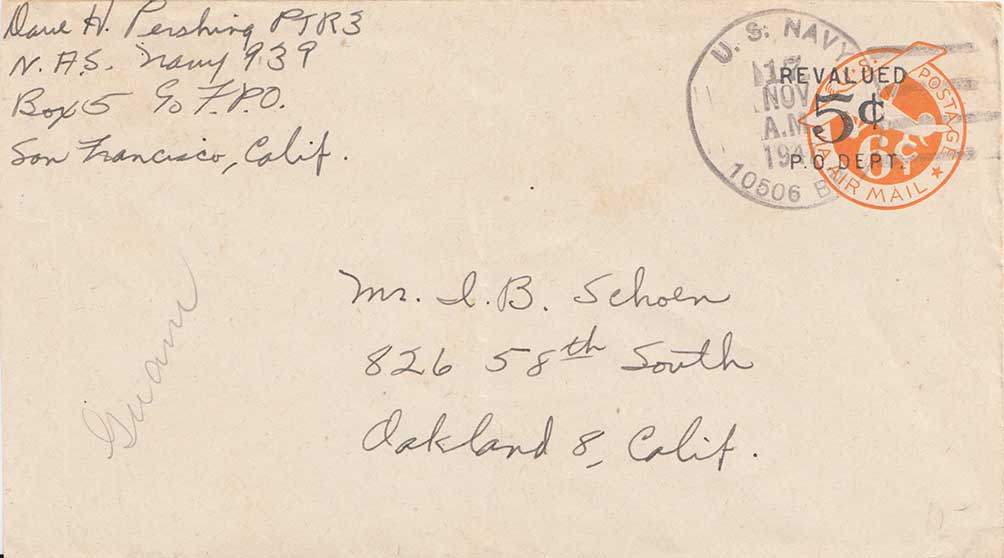 Dave H. Pershing PTR3
N.A.S. Navy 939
Box 5 c/o F.P.O.
San Francisco, Calif.
U.S. NAVY
17
NOV
A.M
194
10506 B
REVALUED
5¢
P.O. DEPT.
U.S. POSTAGE
6¢
VIA AIR MAIL
Guam
Mr. I. B. Schoen
826 58th South
Oakland 8, Calif.